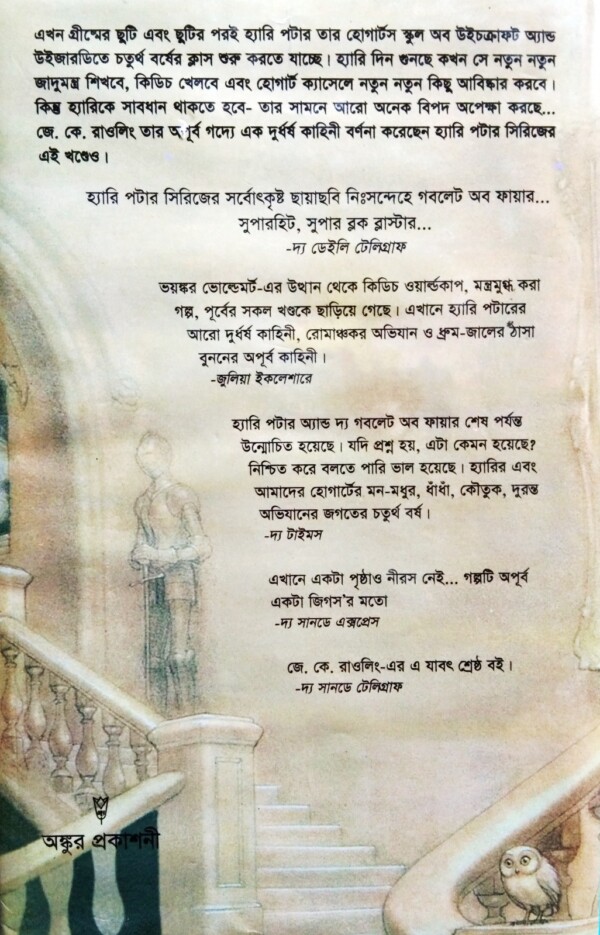 এখন গ্রীষ্মের ছুটি এবং ছুটির পরই হ্যারি পটার তার হোগার্টস স্কুল অব উইচক্রাফট অ্যান্ড
উইজারডিতে চতুর্থ বর্ষের ক্লাস শুরু করতে যাচ্ছে। হ্যারি দিন গুনছে কখন সে নতুন নতুন
জাদুমন্ত্র শিখবে, কিডিচ খেলবে এবং হোগার্ট ক্যাসেলে নতুন নতুন কিছু আবিষ্কার করবে।
কিন্তু হ্যারিকে সাবধান থাকতে হবে- তার সামনে আরো অনেক বিপদ অপেক্ষা করছে...
জে. কে. রাওলিং তার অপূর্ব গদ্যে এক দুর্ধর্ষ কাহিনী বর্ণনা করেছেন হ্যারি পটার সিরিজের
এই খণ্ডেও।
হ্যারি পটার সিরিজের সর্বোৎকৃষ্ট ছায়াছবি নিঃসন্দেহে গবলেট অব ফায়ার...
সুপারহিট, সুপার ব্লক ব্লাস্টার...
-দ্য ডেইলি টেলিগ্রাফ
ভয়ঙ্কর ভোল্ডেমর্ট-এর উত্থান থেকে কিডিচ ওয়ার্ল্ডকাপ, মন্ত্রমুগ্ধ করা
গল্প, পূর্বের সকল খণ্ডকে ছাড়িয়ে গেছে। এখানে হ্যারি পটারের
আরো দুর্ধর্ষ কাহিনী, রোমাঞ্চকর অভিযান ও ধ্রুম-জালের ঠাসা
বুননের অপূর্ব কাহিনী।
-জুলিয়া ইকলেশারে
হ্যারি পটার অ্যান্ড দ্য গবলেট অব ফায়ার শেষ পর্যন্ত
উন্মোচিত হয়েছে। যদি প্রশ্ন হয়, এটা কেমন হয়েছে?
নিশ্চিত করে বলতে পারি ভাল হয়েছে। হ্যারির এবং
আমাদের হোগার্টের মন-মধুর, ধাঁধাঁ, কৌতুক, দুরন্ত
অভিযানের জগতের চতুর্থ বর্ষ।
-দ্য টাইমস
এখানে একটা পৃষ্ঠাও নীরস নেই... গল্পটি অপূর্ব
একটা জিগস'র মতো
-দ্য সানডে এক্সপ্রেস
জে. কে. রাওলিং-এর এ যাবৎ শ্রেষ্ঠ বই।
-দ্য সানডে টেলিগ্রাফ
অঙ্কুর প্রকাশনী